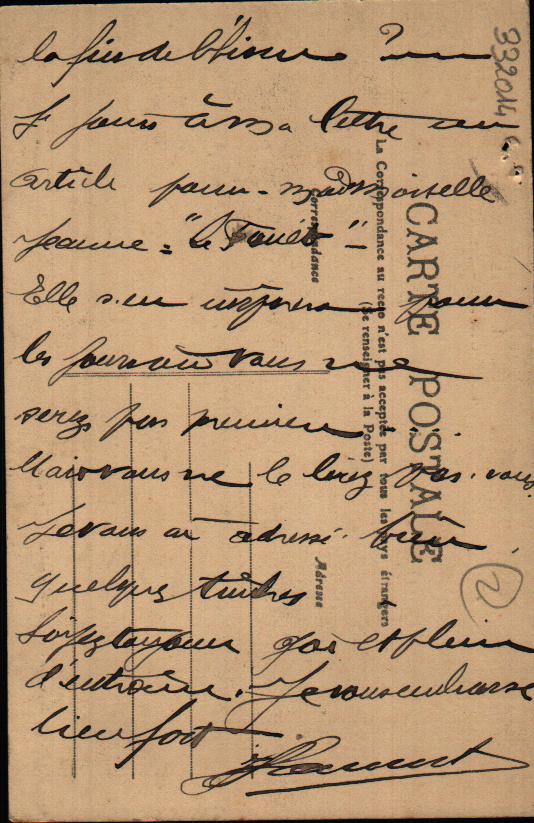 la fin de l'
Je joins à ma lettre un
article pour - mademoiselle
Jeanne = "Le Fouet" -
Elle s'en inspirera pour
les jours où vous ne
serez pas
Mais vous ne le lirez pas. vous
Je vous ai adressé
quelques timbres
Soyez toujours gai et plein
d'entrain. Je vous embrasse
bien fort
332014
2
CARTE POSTALE
La Correspondance au recto n'est pas acceptée par tous les pays étrangers
(Se renseigner à la Poste)
Correspondance
Adresse